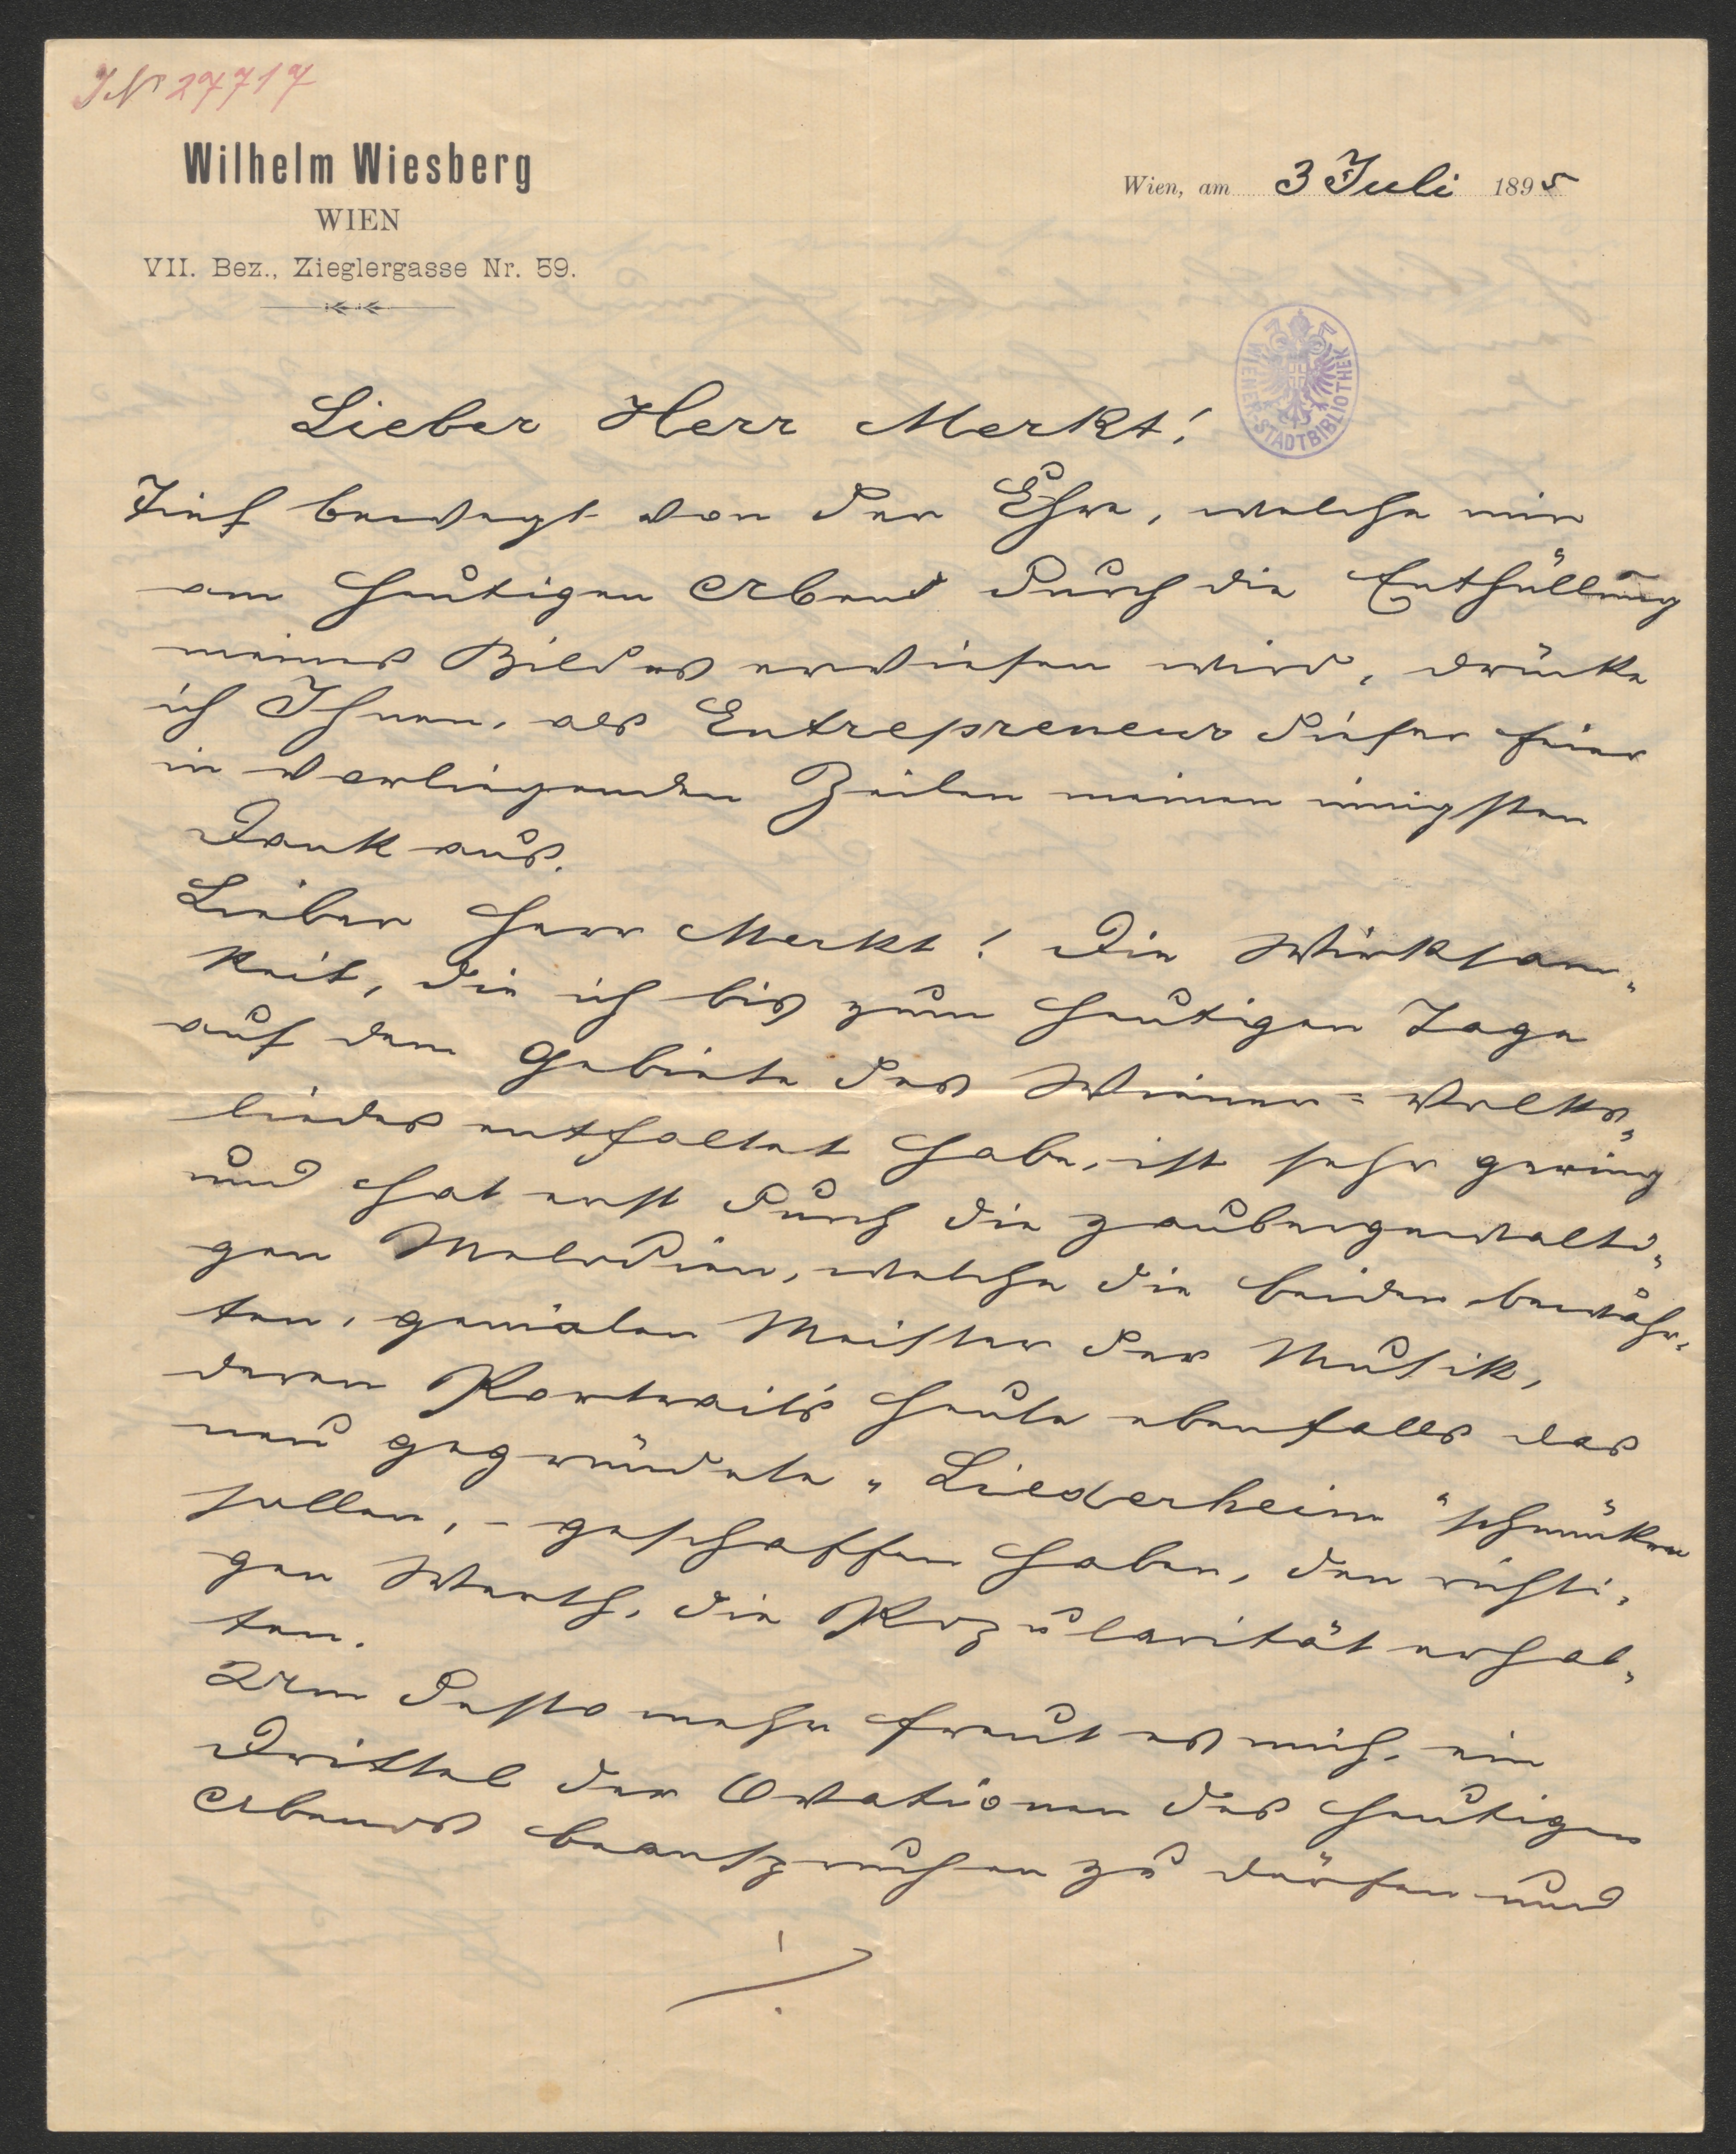 JN 27717
Wilhelm Wiesberg
WIEN
VII. Bez., Zieglergasse Nr. 59.
Wien, am 3 Juli 1895
WIENER-STADTBIBLIOTHEK
Lieber Herr Merkt!
Tief bewegt von der Ehre, welche mir
am heutigen Abend durch die Enthüllung
meines Bildes erwiesen wird, drücke
ich Ihnen, als Entrepreneur dieser Feier
in vorliegenden Zeilen meinen innigsten
Dank aus.
Lieber Herr Merkt! Die Wirksam-
keit, die ich bis zum heutigen Tage
auf dem Gebiete des Wiener=Volks-
liedes entfaltet habe, ist sehr gering
und hat erst durch die zaubergewalti-
gen Melodien, welche die beiden bewähr-
ten, genialen Meister der Musik,
deren Portrait's heute ebenfalls das
neu gegründete "Liederheim" schmücken
sollen, - geschaffen haben, den richti-
gen Werth, die Popularität erhal-
ten.
Um desto mehr freut es mich, ein
Drittel der Ovationen des heutigen
Abends beanspruchen zu dürfen und
./.